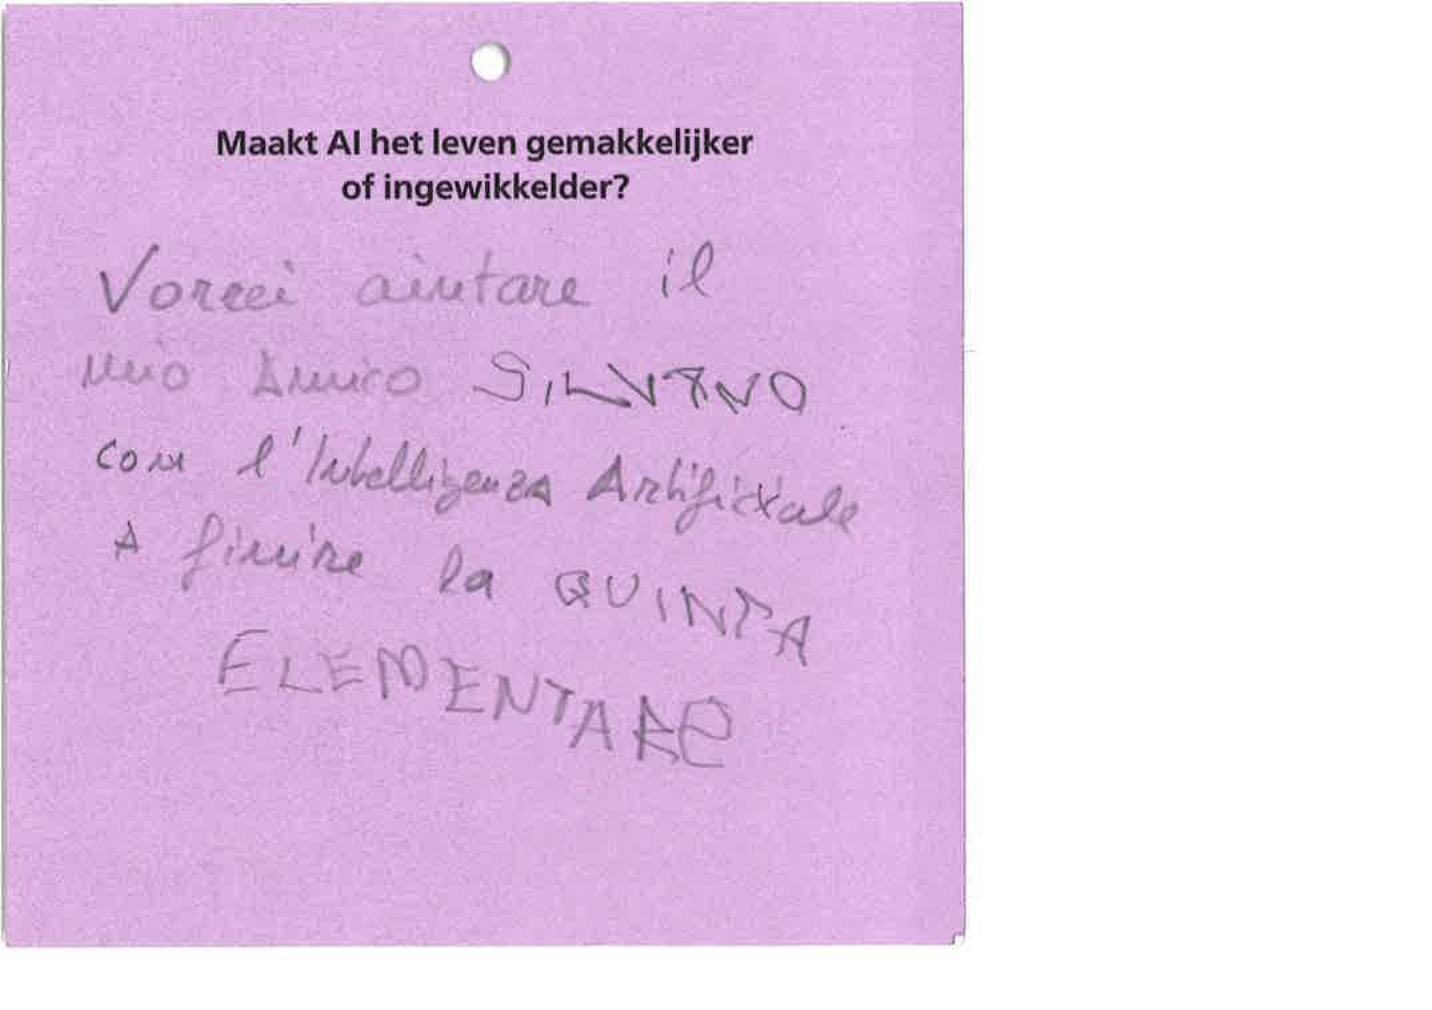 Maakt AI het leven gemakkelijker
of ingewikkelder?
Vorrei aiutare il
mio Amico SILVANO
con l'Intelligenza Artificiale
A finire la QUINTA
ELEMENTARE